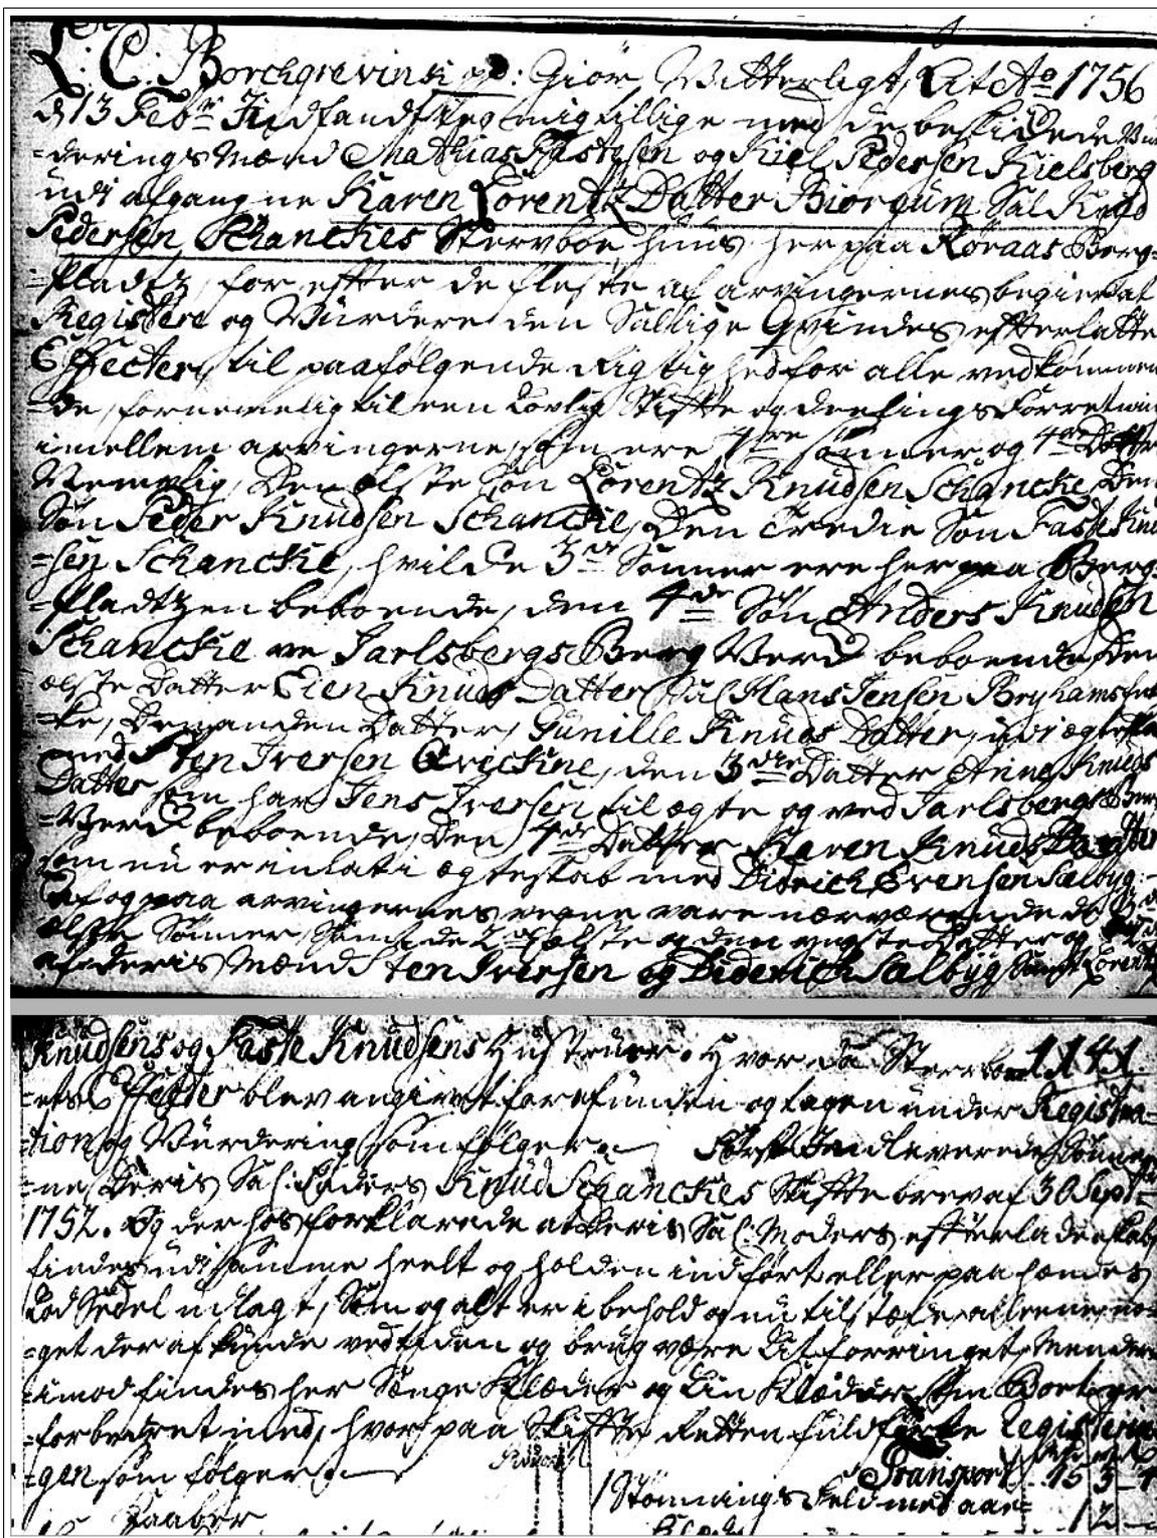 L. C. Borchgrevink Giør Witterligt, At Ao 1756
d 13 Febr: Jndfandt Jeg mig tillige med de beskikkede Vur
=derings Mænd Mathias Fastesen og Kiel Pedersen Kielsberg
udj afgangne Karen Lorentz Datter Biørgum Sal Knud
Pedersen Schanckes Sterrboe huus her paa Røraas Berg=
=Pladtz, for efter de fleste af arvingernes begier at
Registere og Wurdere den Sallige Qvindes efterlatte
Effecter, til paafølgende Rigtighed for alle vedkommen
=de, fornemmelig til een Lovlig Skifte og deelings Forretning
imellem arvingerne, som ere 4re sønner og 4re Døttre
Nemlig, Den ælste Søn Lorentz Knudsen Schancke, Den
Søn Peder Knudsen Schancke, Den tredie Søn Faste Knu
=sen Schancke, hvilke 3de Sønner ere her paa Berg=
=Pladtzen beboende, den 4de Søn Anders Knudsen
Schancke ve Jarlsbergs Berg Verck beboende, Den
ælste Datter Elen Knuds Datter, Sal Hans Jensen
=ke, Den anden Datter, Gunille Knuds Datter, udj ægteskab
med Sten Iversen, den 3die Datter Anne Knuds
Datter som har Jens Iversen til ægte og ved Jarlsbergs Berg
=Verck beboende, Den 4de Datter Karen Knuds Datter
som nu er inlat i ægteskab med Didrich Evensen Sælbyg
Af og paa arvingernes vegne vare nærværende de 3de
ælste Sønner, samt de 2de ælste og den yngste Datter og
af deris Mænd Sten Iversen og Diderich Sælbyg samt Lorentz
Knudsens og Faste Knudsens Hustruer. Hvor da Sterrboe= 1141
=ets Effecter blev angivet forefunden og tagen under Registra
=tion og Wurdering som følger Først Indleverede Sønner
=ne Deris Sal: Faders Knud Schanckes Skifte brev af 30 Sept:
1752. Og der hos forklarede at Deris Sal: Moders efterladenskab
findes udj samme heelt og holden indført eller paa hendes
Lod Sedel udlagt, Som og alt er i behold og nu tilstæde, allene no=
=get der af kunde ved tiden og brug være Uforringet, Men der
=imod findes her Senge Klæder og Lin Klæder
=forbedret med, hvor paa Skifte Retten fuldførte Registerin
=gen som følger
Transport 15 3 4
Kaaber 1 Stønnings feld med aae= 1 2